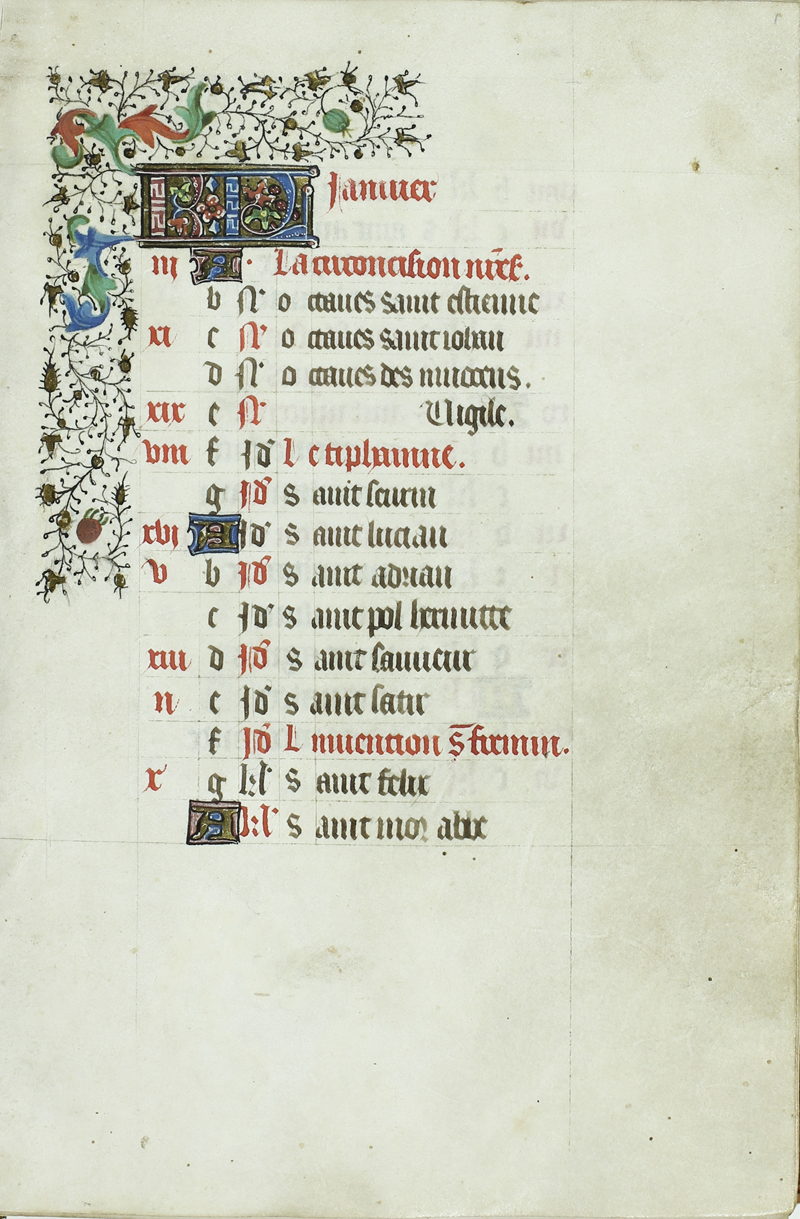 KL Januier
iii A La circoncision nr̄e s̄.
b N̄ Octaues saint estienne
xi c N̄ Octaues saint iohan
d N̄ Octaues des innocens.
xix e N̄ Vigile.
viii f Id' Le tiphanne.
g Id' Saint seurin
xvi A Id' Saint lucian
v b Id' Saint adrian
c Id' Saint pol hermitte
xiii d Id' Saint sauueur
ii e Id' Saint satir
f Id' Linuention s̄. firmin.
x g kl' Saint felix
A kl' Saint mor abbe